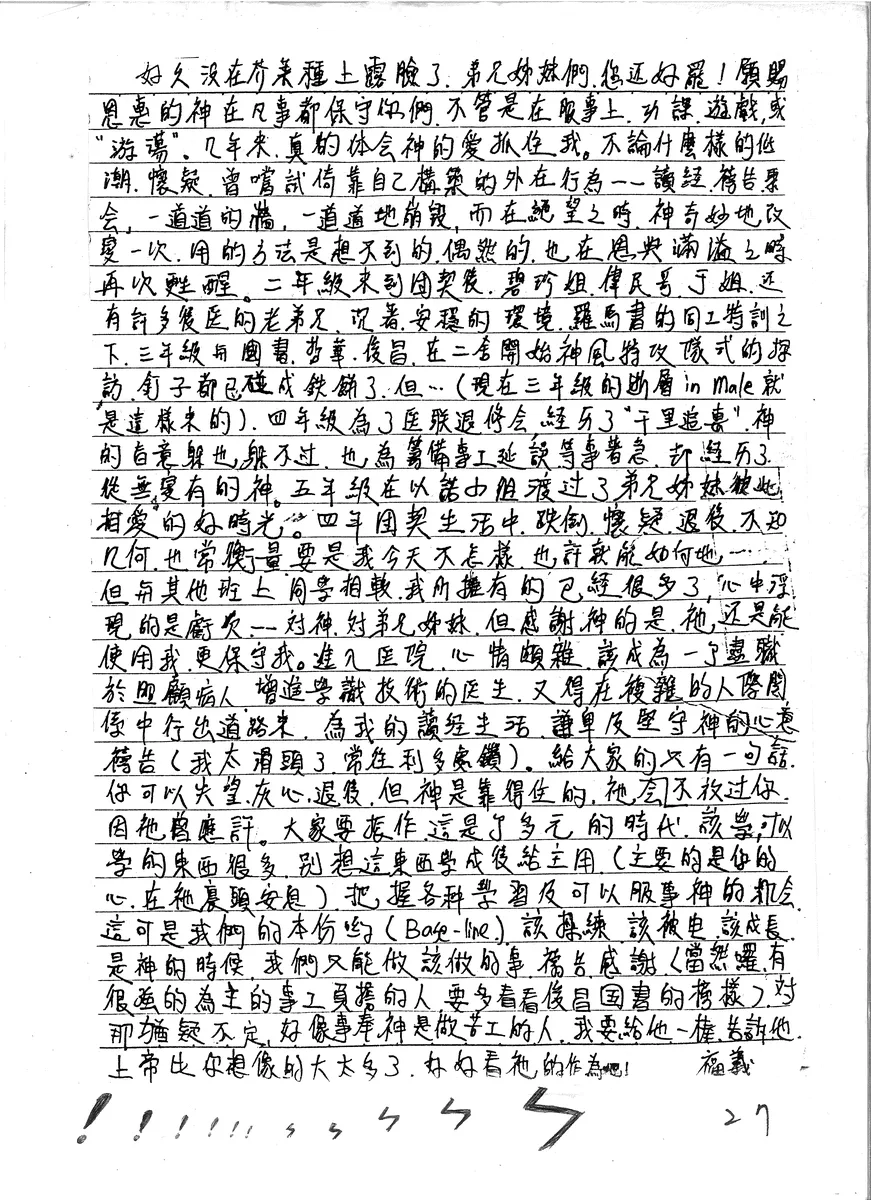 好久没在芥菜種上露臉了.弟兄姊妹們.您还好罷！願賜
恩惠的神在凡事都保守你們.不管是在服事上.功課.遊戲,或
"游蕩".几年来.真的体会神的愛抓住我。不論什麼樣的低
潮.懷疑.曾嚐試倚靠自己構築的外在行為——讀経.禱告聚
会,一道道的牆,一道道地崩毀,而在絕望之時.神奇妙地改
變一次.用的方法是想不到的.偶然的.也在恩典滿溢之時
再次甦醒。二年級來到团契後.碧珍姐.偉民哥.于姐.还
有許多後医的老弟兄.沉著.安穩的環境.羅馬書的同工特訓之
下.三年級与國書.哲華.俊昌.在二舍開始神風特攻隊式的探
訪.釘子都已碰成鉄餅了.但…(現在三年級的断層in Male就
是這樣来的).四年級為了医联退修会,経历了"千里追 ".神
的旨意躲也躲不过.也為籌備事工延誤等事著急.却経历了
從無變有的神。五年級在以諾小组渡过了弟兄姊妹彼此
相愛的好時光。四年团契生活中.跌倒.懷疑.退後.不知
几何.也常衡量要是我今天不怎樣.也許就能如何地…
但与其他班上同学相較.我所擁有的已經很多了,心中浮
現的是虧欠——対神.対弟兄姊妹.但感謝神的是.祂,还是能
使用我.更保守我。進入医院.心情頗雜.該成為一了盡職
於照顧病人.增進学識技術的医生.又得在複雜的人際関
係中行出道路来.為我的讀経生活.謙卑及堅守神的心意
禱告(我太滑頭了.常往利多處鑽)。給大家的只有一句話.
你可以失望.灰心.退後.但神是靠得住的.祂会不放过你.
因祂曾應許。大家要振作.這是了多元的時代.該学,可以
学的東西很多.別想這東西学成後給主用(主要的是你的
心.在祂裏頭安息).把握各种学習及可以服事神的机会.
這可是我們的本份哟(Base-line).該操練.該被电.該成長.
是神的時候.我們只能做該做的事.禱告感謝(當然囉.有
很強的為主的事工負擔的人.要多看看俊昌国書的榜樣).対
那猶疑不定.好像事奉神是做苦工的人.我要給他一棒.告訴他.
上帝比你想像的大太多了.好好看祂的作為吧!　福義
!!!!!!!
27